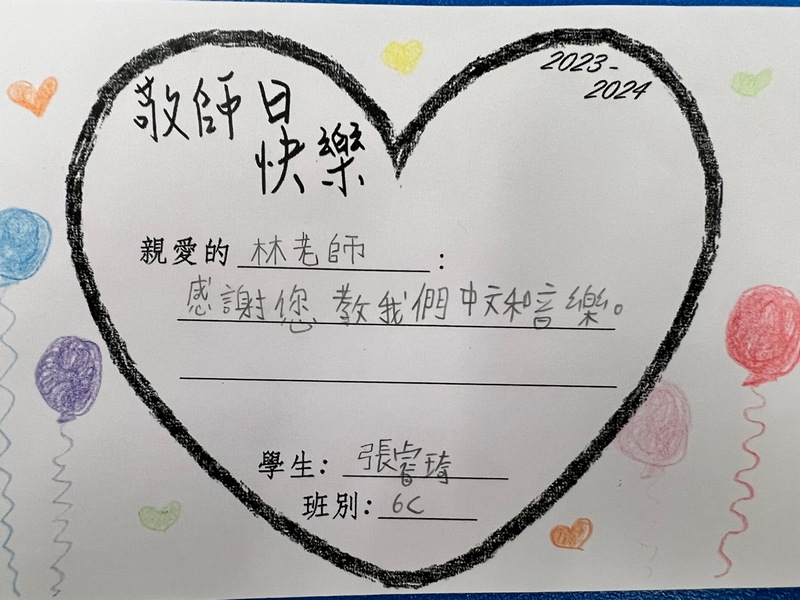 敬師日
快樂
2023-
2024
親愛的 林老師 :
感謝您教我們中文和音樂。
學生: 張睿琦
班別: 6C